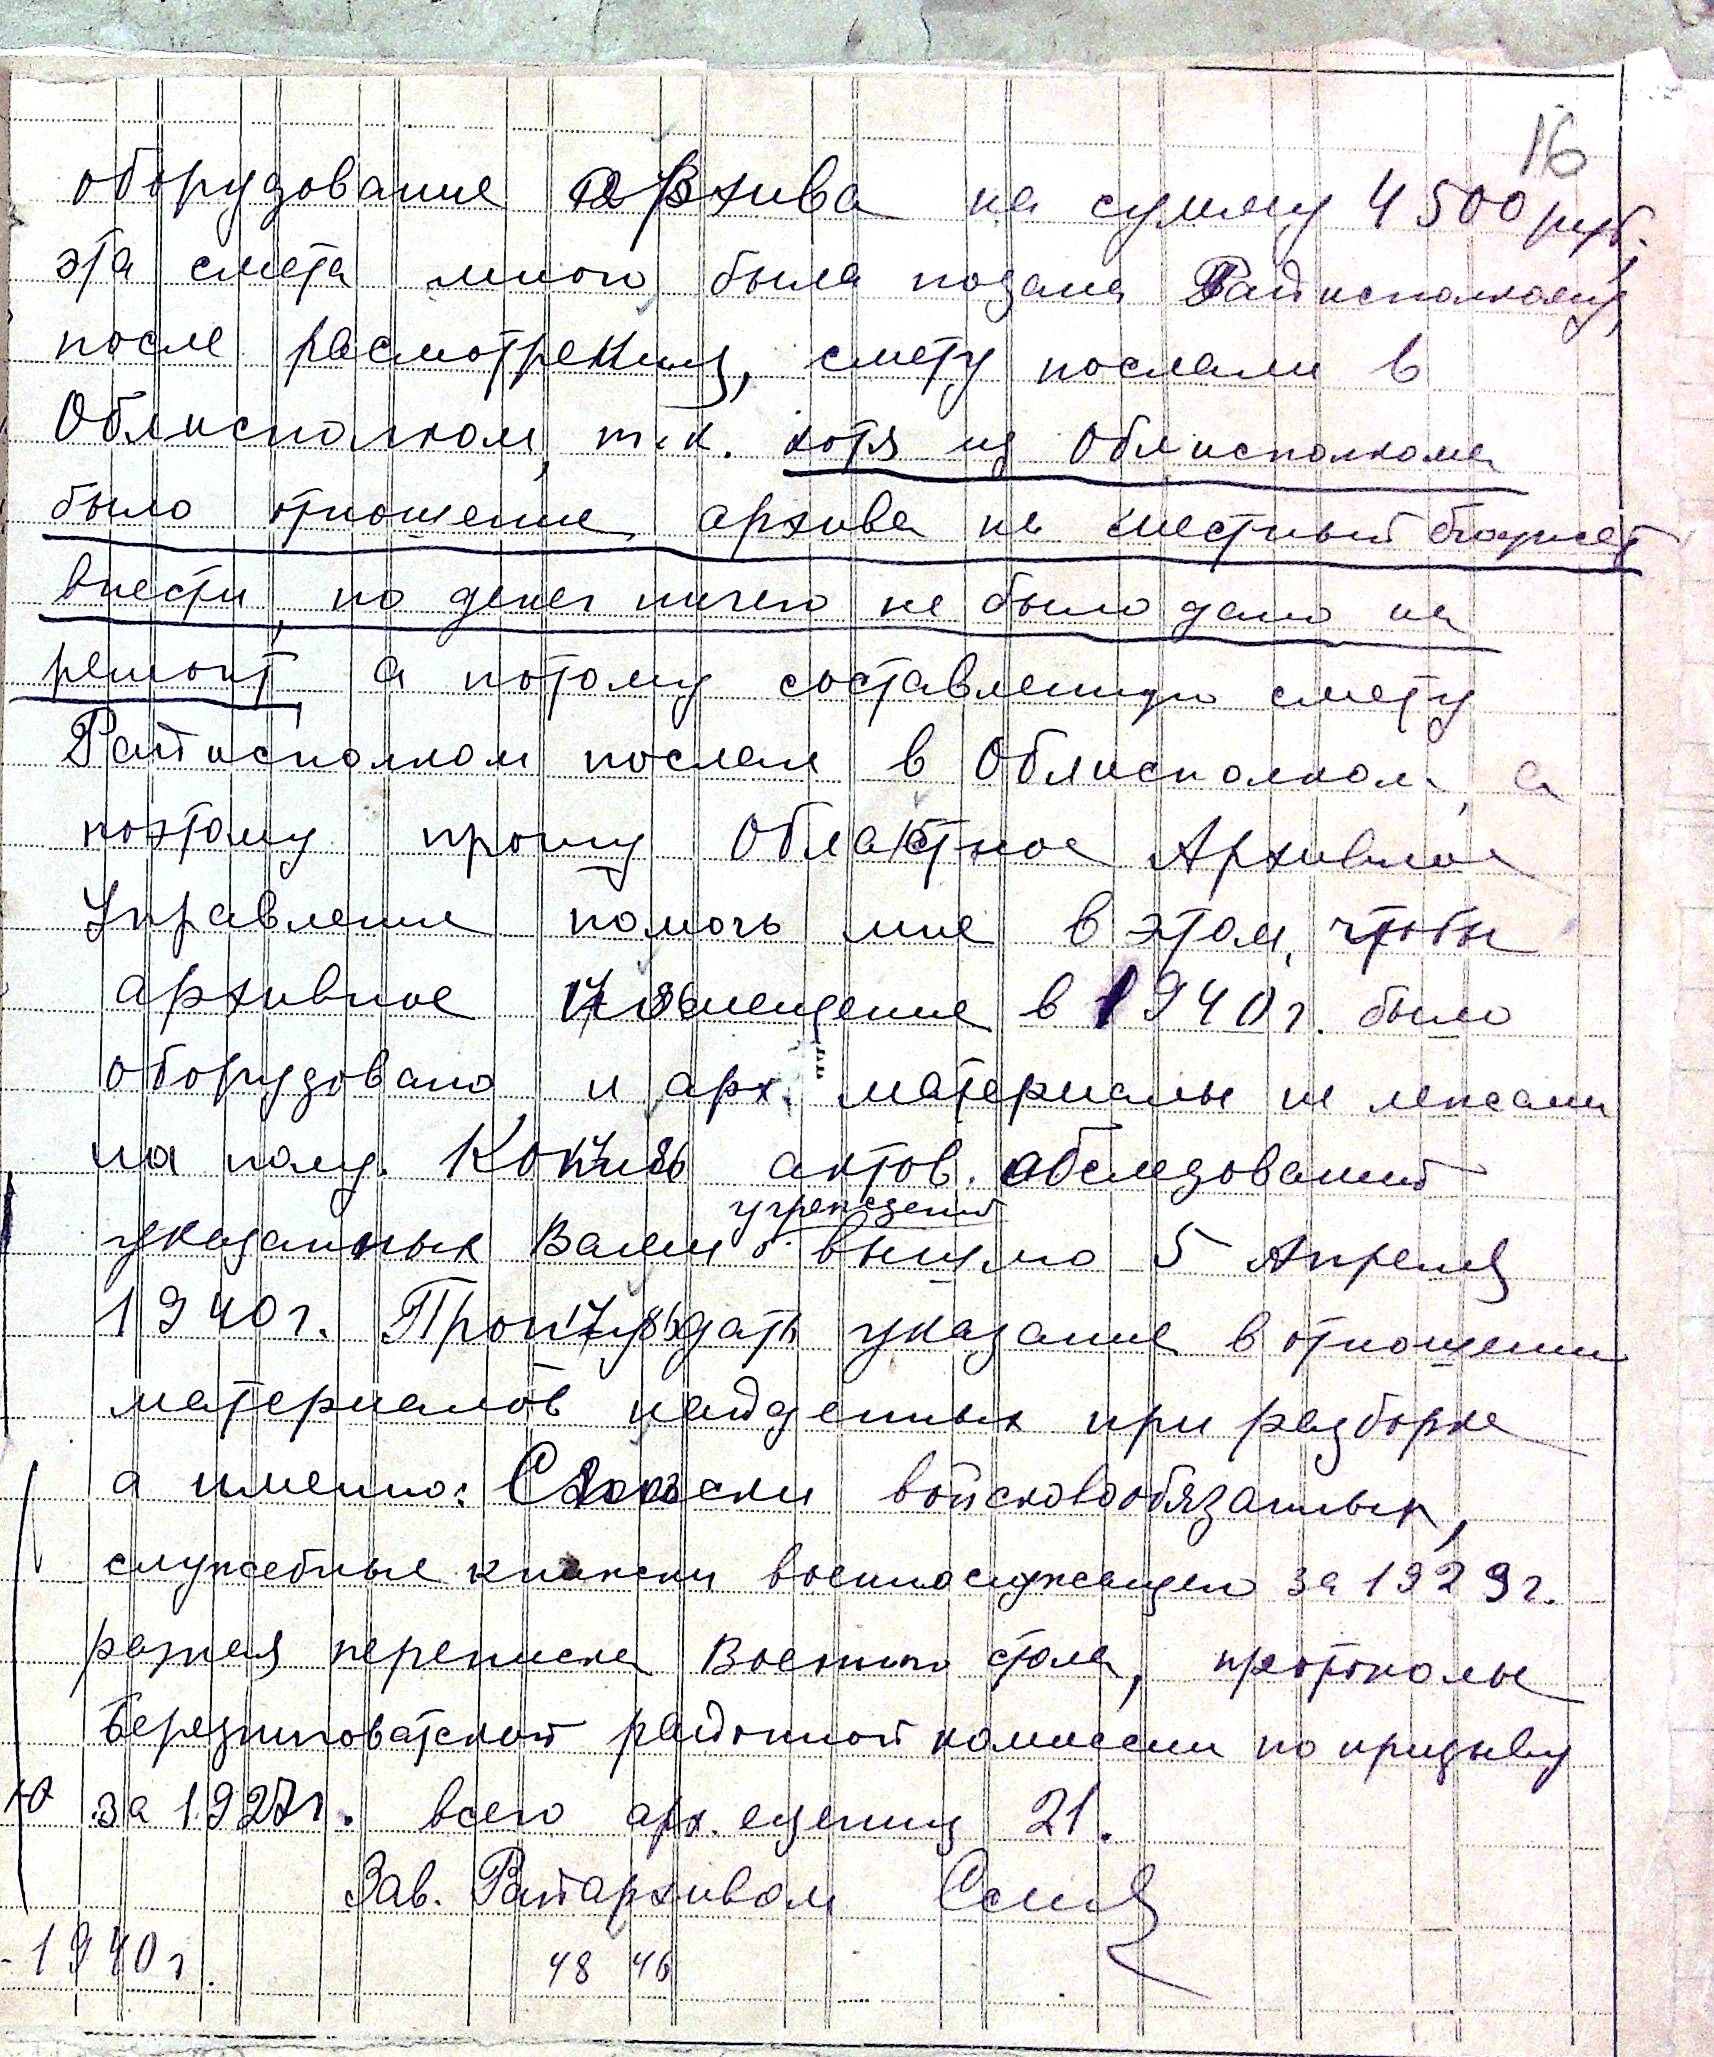 16
оборудование архива на сумму 4500 руб.,
эта смета мною была подана Райисполкому,
после расмотрения, смету послали в
Облисполком, т.к. хотя из Облисполкома
было отношение архива на местный бюджет
внести, но денег ничего не было дано на
ремонт, а потому составленную смету
Райисполком послал в Облисполком, а
поэтому прошу Областное Архивное
Управление помочь мне в этом, чтобы
архивное помещение в 1940 г. было
оборудовано, и арх. материалы не лежали
на полу. Копии актов обследований
учреждений
указанных Вами выслано 5 Апреля
1940 г. Прошу дать указание в отношении
материалов найденных при разборке
а именно: Списки войсковообязанных,
служебные книжки военнослужащего за 1929 г.
разная переписка Военного стола, протоколы
Березниговатской районной комиссии по призыву
за 1927 г. всего арх. единиц 21.
Зав. Райархивом
1940 г.
48 46